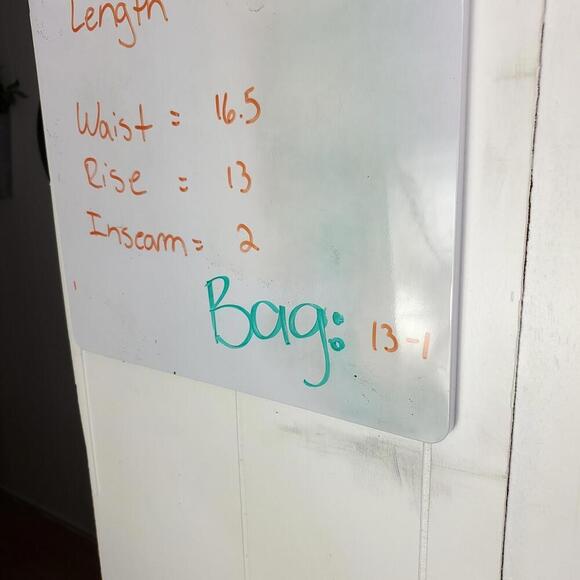 Length
Waist = 16.5
Rise = 13
Inseam = 2
Bag: 13-1